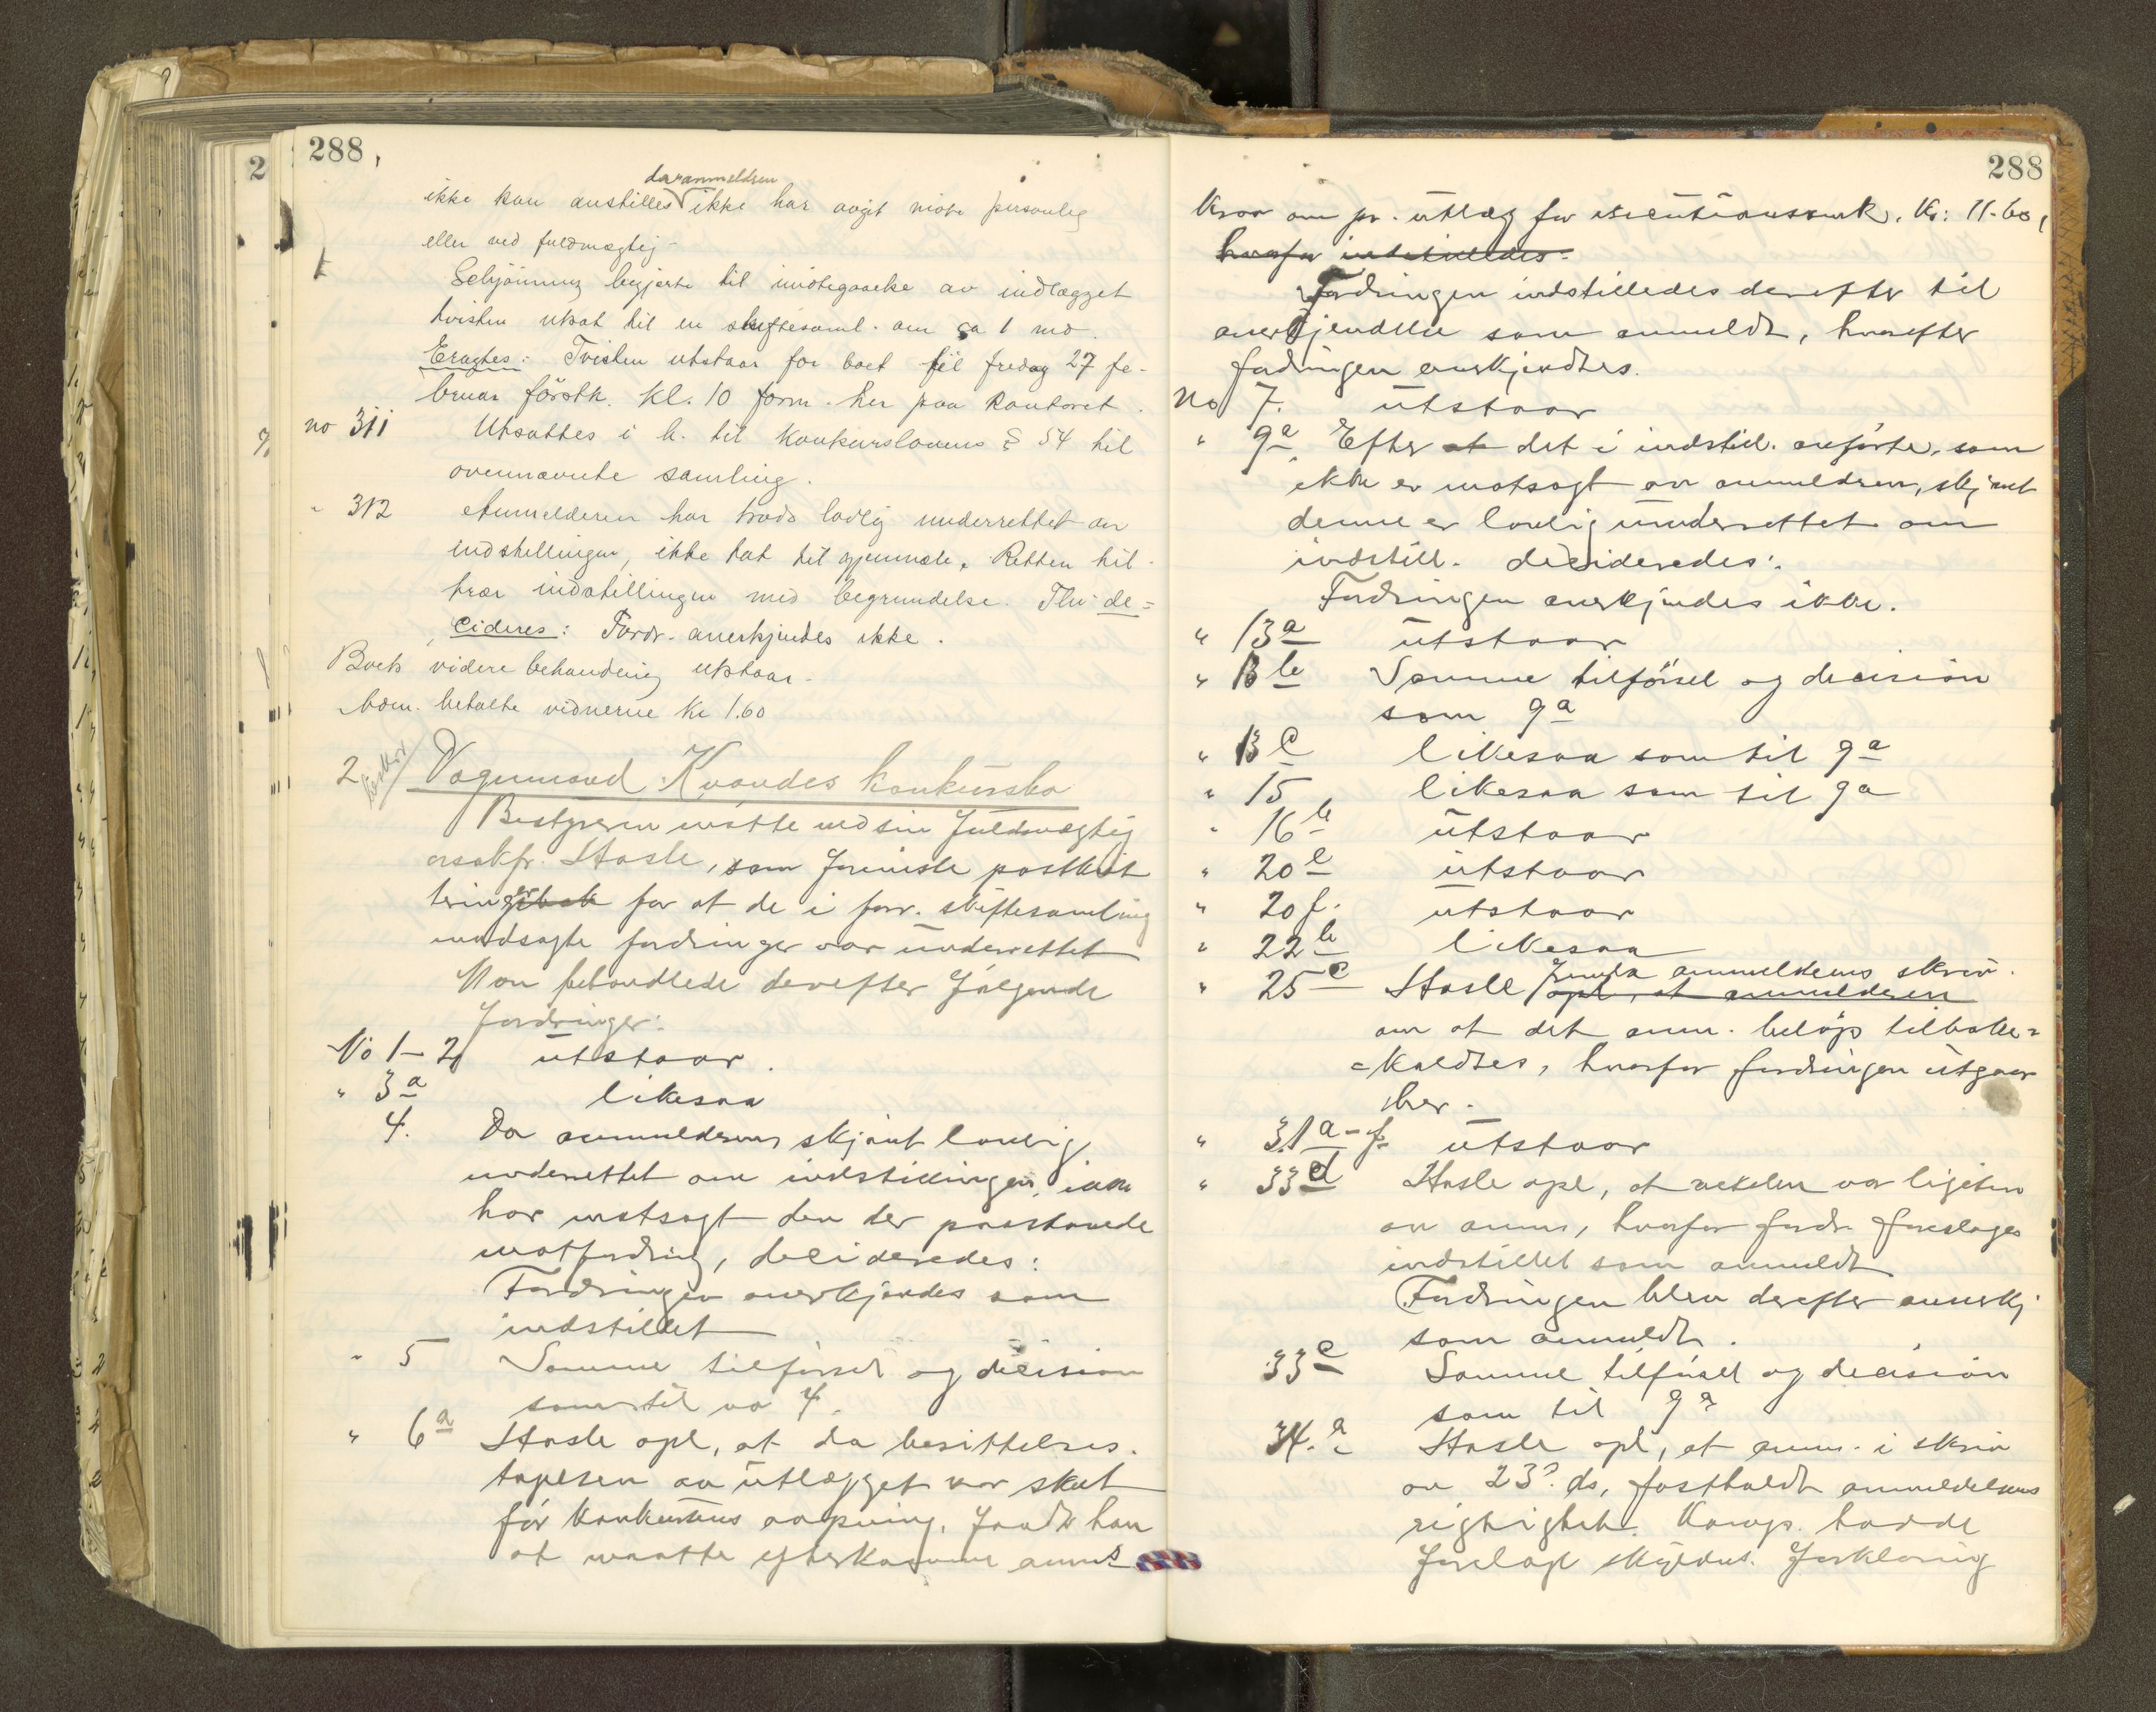 288
da anmelderen
ikke kan anstilles ikke har avgit møte personlig
eller ved fuldmægtig
Schjönning begjærte til imøtegaaelse av indlægget
tvisten utsat til en skiftesaml. om ca 1 md.
Eragtes: Tvisten utstaar for boet til fredag 27 fe-
bruar förstk. kl. 10 form. her paa kontoret.
no 311 Utsattes i h. til Konkurslovens § 54 til
ovennævnte samling.
" 312 Anmelderen har trods lovlig underrettet om
indstillingen, ikke tat til gjenmæle. Retten til-
træder indstillingen med begrundelse. Thi de=
cideres: Fordr. anerkjendes ikke.
Boets videre behandling utstaar.
betalte vidnerne Kr 1.60
2 Vognmand Kvandes konkursbo
Bestyreren møtte ved sin fuldmægtig
ovsakfr. Hasle, som fremla postkvit
teringer for at de i forr. skiftesamling
modsagte fordringer var underrettet
Man behandlede derefter følgende
fordringer:
No 1-2 utstaar.
" 3a likesaa
4. Da anmelderen skjønt lovlig
underrettet om indstillingen, ikke
har motsagt den der paastaaede
motfordring, decideredes:
Fordringen anerkjendes som
indstillet
" 5 Samme tilførsel og decision
som til no 4.
" 6a Hasle opl, at da besittelses-
tagelsen av utlægget var skeet
før konkursens aapning, fandt han
at maatte etterkomme anms
288
krav om pr. utlæg for executionsomk. Kr: 11.60,
hvorfor indstilledes.
Fordringen indstilledes derefter til
anerkjendelse som anmeldt, hvorefter
fordringen anerkjendtes.
No 7. utstaar
" 9a Efter at det i indstill. anførte, som
ikke er motsagt av anmelderen, skjønt
denne er lovlig underrettet om
indstill. decideredes:
Fordringen anerkjendes ikke.
" 13a utstaar
" 13b Samme tilførsel og decision
som 9a
" 13c likesaa som til 9a
" 15 likesaa som til 9a
" 16b utstaar
" 20e utstaar
" 20f. utstaar
" 22b likesaa
" 25c Hasle fremla anmelderens skriv.
opl, at anmelderen
om at det anm. beløp tilbake=
=kaldtes, hvorfor fordringen utgaar
her.
" 31a-f utstaar
" 33d Hasle opl, at vekelen var ligeten
av anm, hvorfor fordr. foreslages
indstillet som anmeldt
Fordringen blev derefter anerkj
som anmeldt.
33e Samme tilførsel og decision
som til 9a
34.a Hasle opl, at anm. i skriv
av 23. ds, fastholdt anmeldelsens
rigtighet. Komp. hadde
forelagt skyldn. forklaring